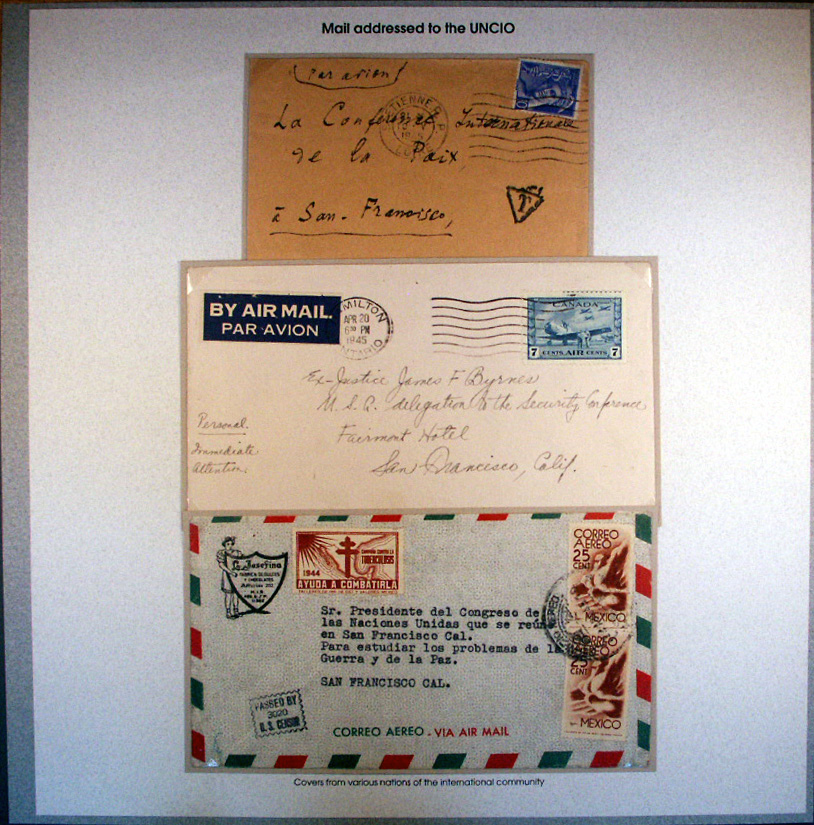 Mail addressed to the UNCIO
(Par avion)
La Conférence Internationale
de la Paix
à San-Francisco,
T
BY AIR MAIL.
PAR AVION
MILTON
APR 20
6 PM
1945
ONTARIO
CANADA
7 CENTS AIR CENTS 7
Ex-Justice James F Byrnes
U.S.A. delegation to the Security Conference
Fairmont Hotel
San Francisco, Calif.
Personal.
Immediate
Attention.
La Josefina
Y CHOCOLATES
1944
CAMPAÑA CONTRA LA
TUBERCULOSIS
AYUDA A COMBATIRLA
CORREO
AEREO
25
CENT
MEXICO
CORREO
AEREO
25
CENT
MEXICO
Sr. Presidente del Congreso de
las Naciones Unidas que se reún
en San Francisco Cal.
Para estudiar los problemas de la
Guerra y de la Paz.
SAN FRANCISCO CAL.
PASSED BY
3020
U.S. CENSOR
CORREO AEREO - VIA AIR MAIL
Covers from various nations of the international community